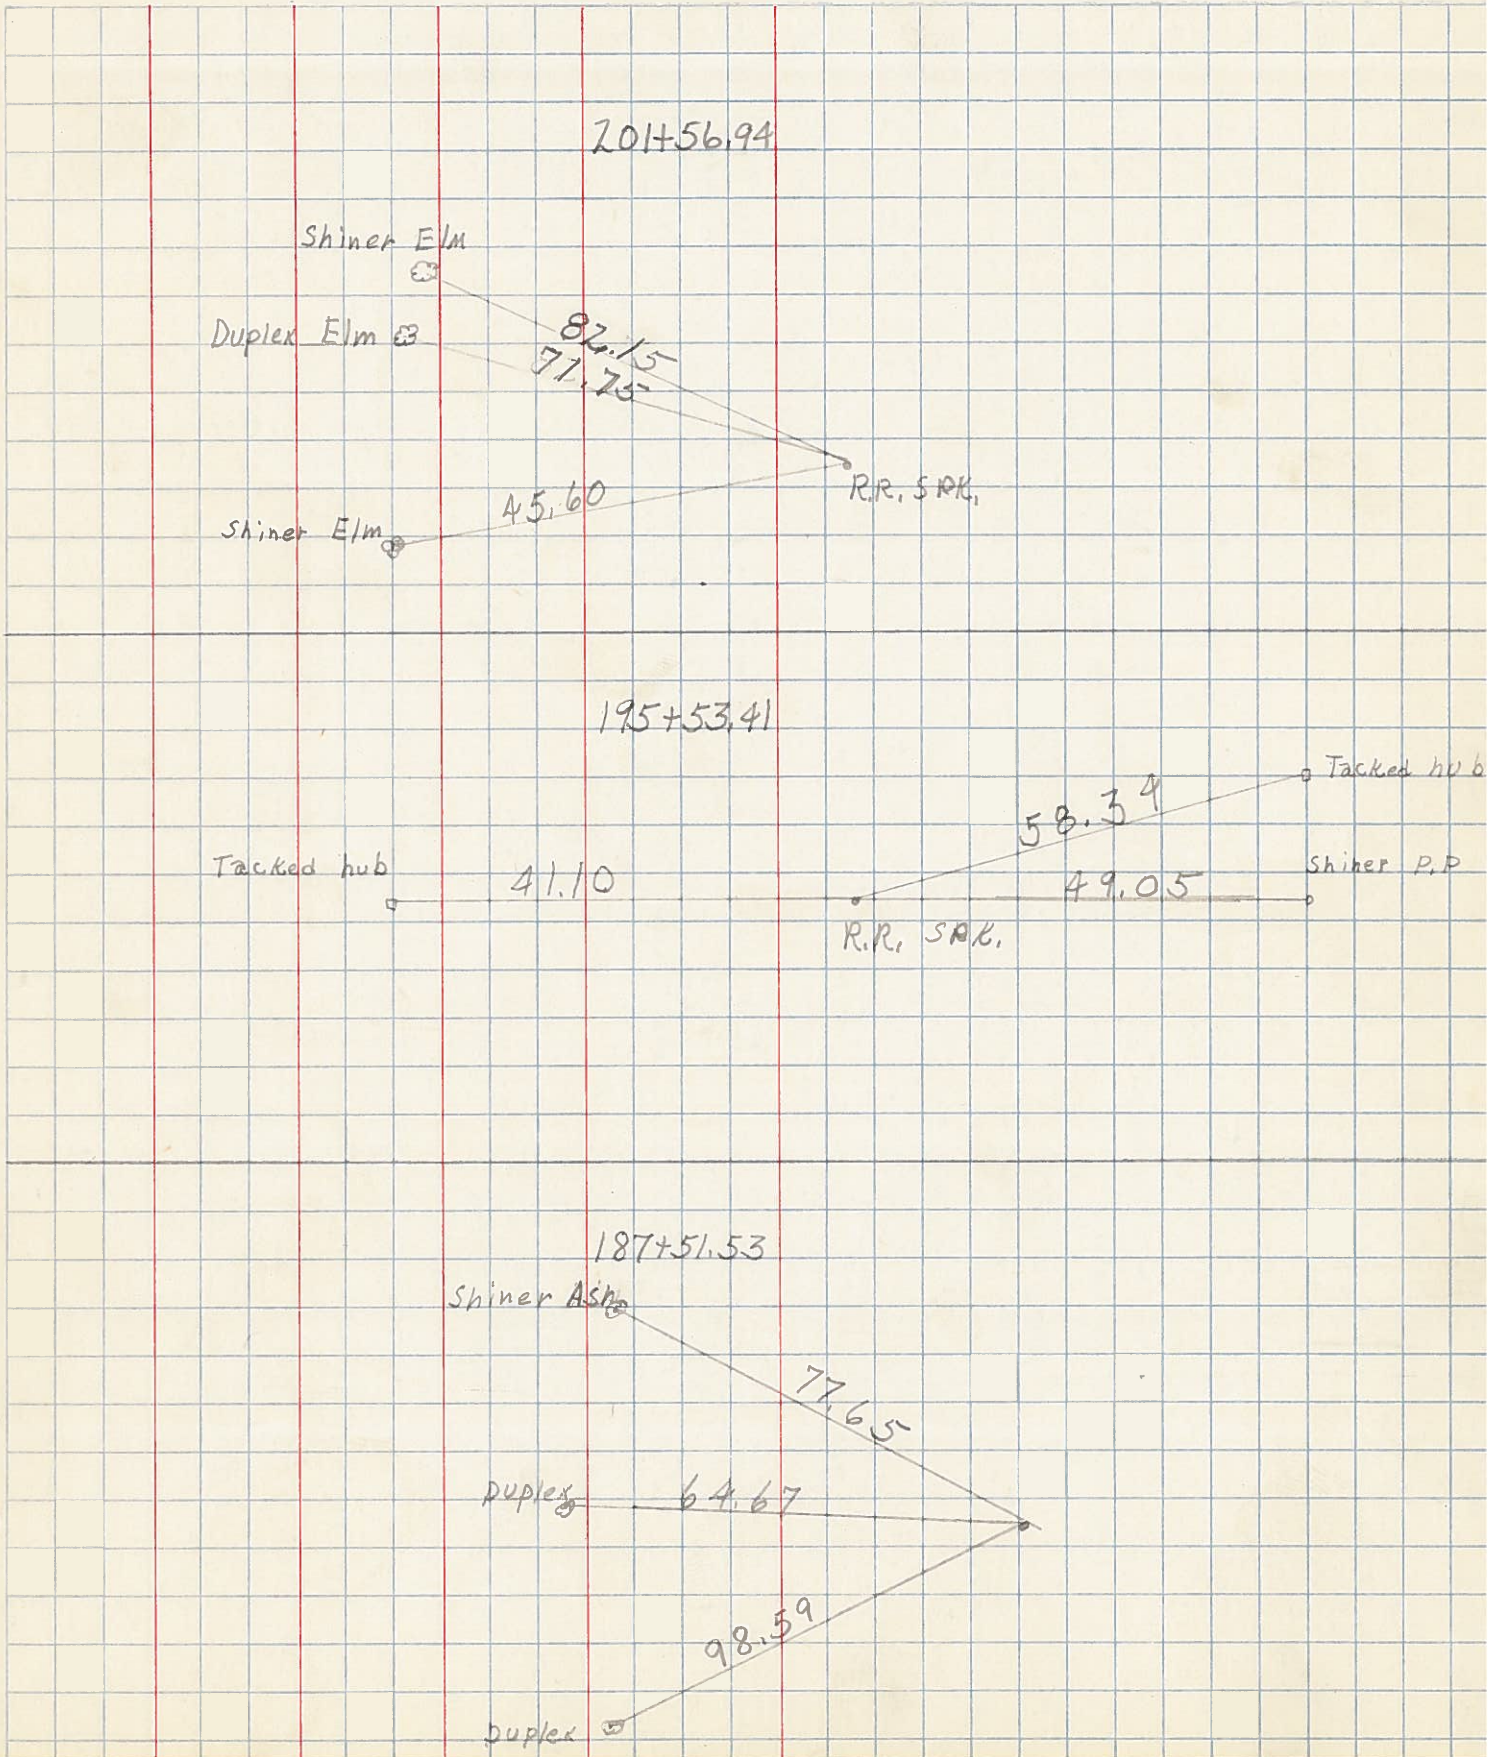 201+56.94
Shiner Elm
Duplex Elm
82.15
71.75
45.60
R.R. SPK.
Shiner Elm
195+53.41
Tacked hub
58.34
Tacked hub
41.10
49.05
Shiner P.P
R.R. SPK.
187+51.53
Shiner Ash
77.65
Duplex
64.67
98.59
Duplex